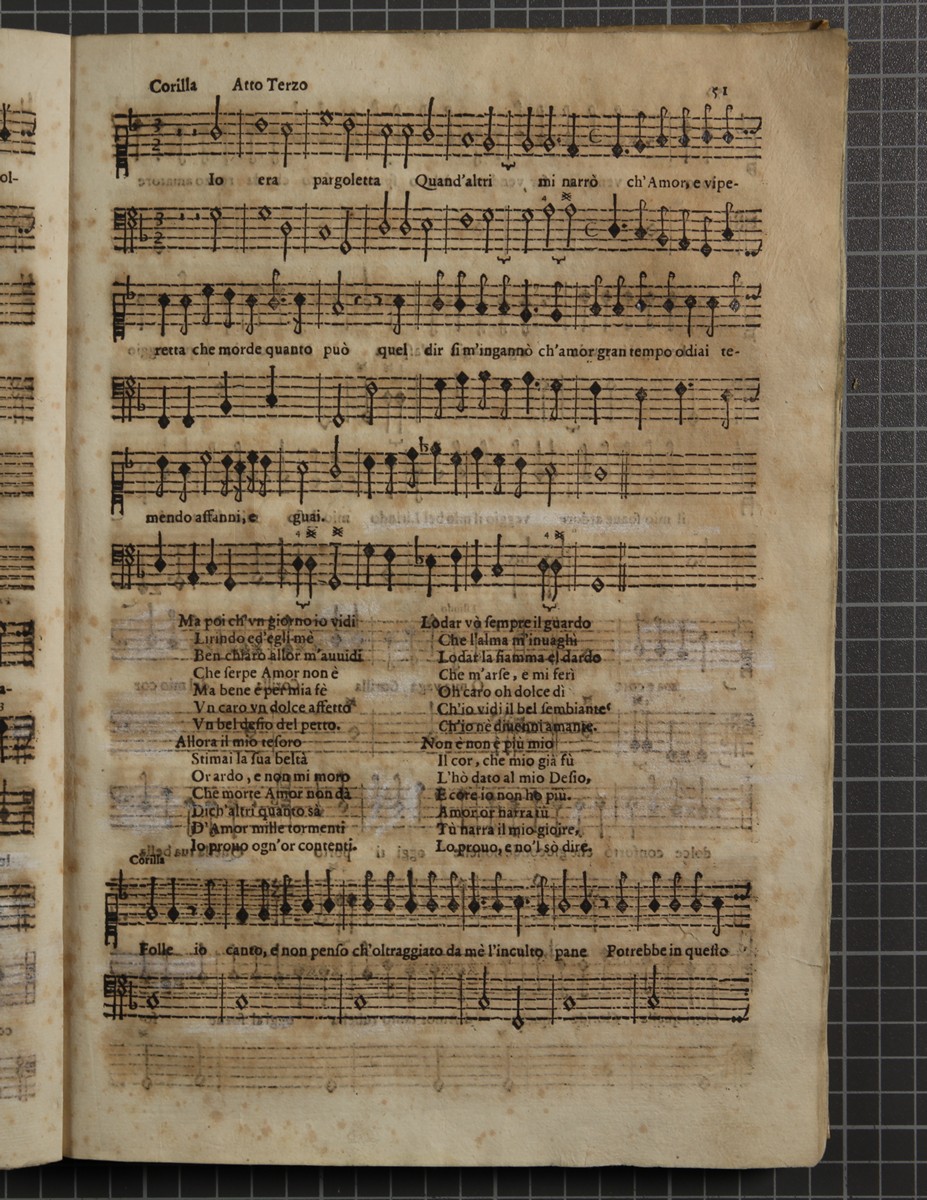 Corilla Atto Terzo
51
Io era pargoletta Quand'altri mi narrò ch'Amor, e vipe-
retta che morde quanto può quel dir ſi m'ingannò ch'amor gran tempo odiai te-
mendo affanni, e guai.
Ma poi ch'vn giorno io vidi
Lirindo ed'egli mè
Ben chiaro allor m'auuidi
Che ſerpe Amor non è
Ma bene è per mia fè
Vn caro vn dolce affetto
Vn bel deſio del petto.
Allora il mio teſoro
Stimai la ſua beltà
Or ardo, e non mi moro
Che morte Amor non dà
Dich'altri quanto sà
D'Amor mille tormenti
Io prouo ogn'or contenti.
Lodar vò ſempre il guardo
Che l'alma m'inuaghì
Lodar la fiamma el dardo
Che m'arſe, e mi ferì
Oh caro oh dolce dì
Ch'io vidi il bel ſembiante
Ch'io nè diuenni amante.
Non è non è più mio
Il cor, che mio già fù
L'hò dato al mio Deſio,
E core io non ho più.
Amor or harra tù
Tù narra il mio gioire,
Lo prouo, e no'l sò dire.
Corilla
Folle io canto, e non penſo ch'oltraggiato da mè l'inculto pane Potrebbe in queſto